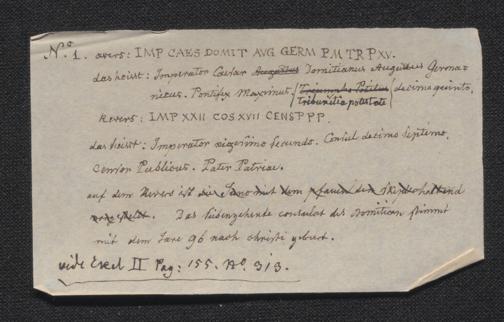 N.º 1. avers: IMP CAES DOMIT AVG GERM P.M TR P XV.
das heisst: Imperator Caesar Augustus Domitianus Augustus Germa-
nicus. Pontifex Maximus / Tribunitia potestate / decimaquinto.
Revers: IMP XXII COS XVII CENS P PP.
das heisst: Imperator vigesimo secundo. Consul decimo septimo.
Censor Publicus. Pater Patriae.
auf dem Revers ist die Juno mit dem pfauen den
. Das siebenzehende consulat des Domitian stimmt
mit dem Jare 96 nach christi geburt.
vide Ekel II Pag: 155. Nº. 313.